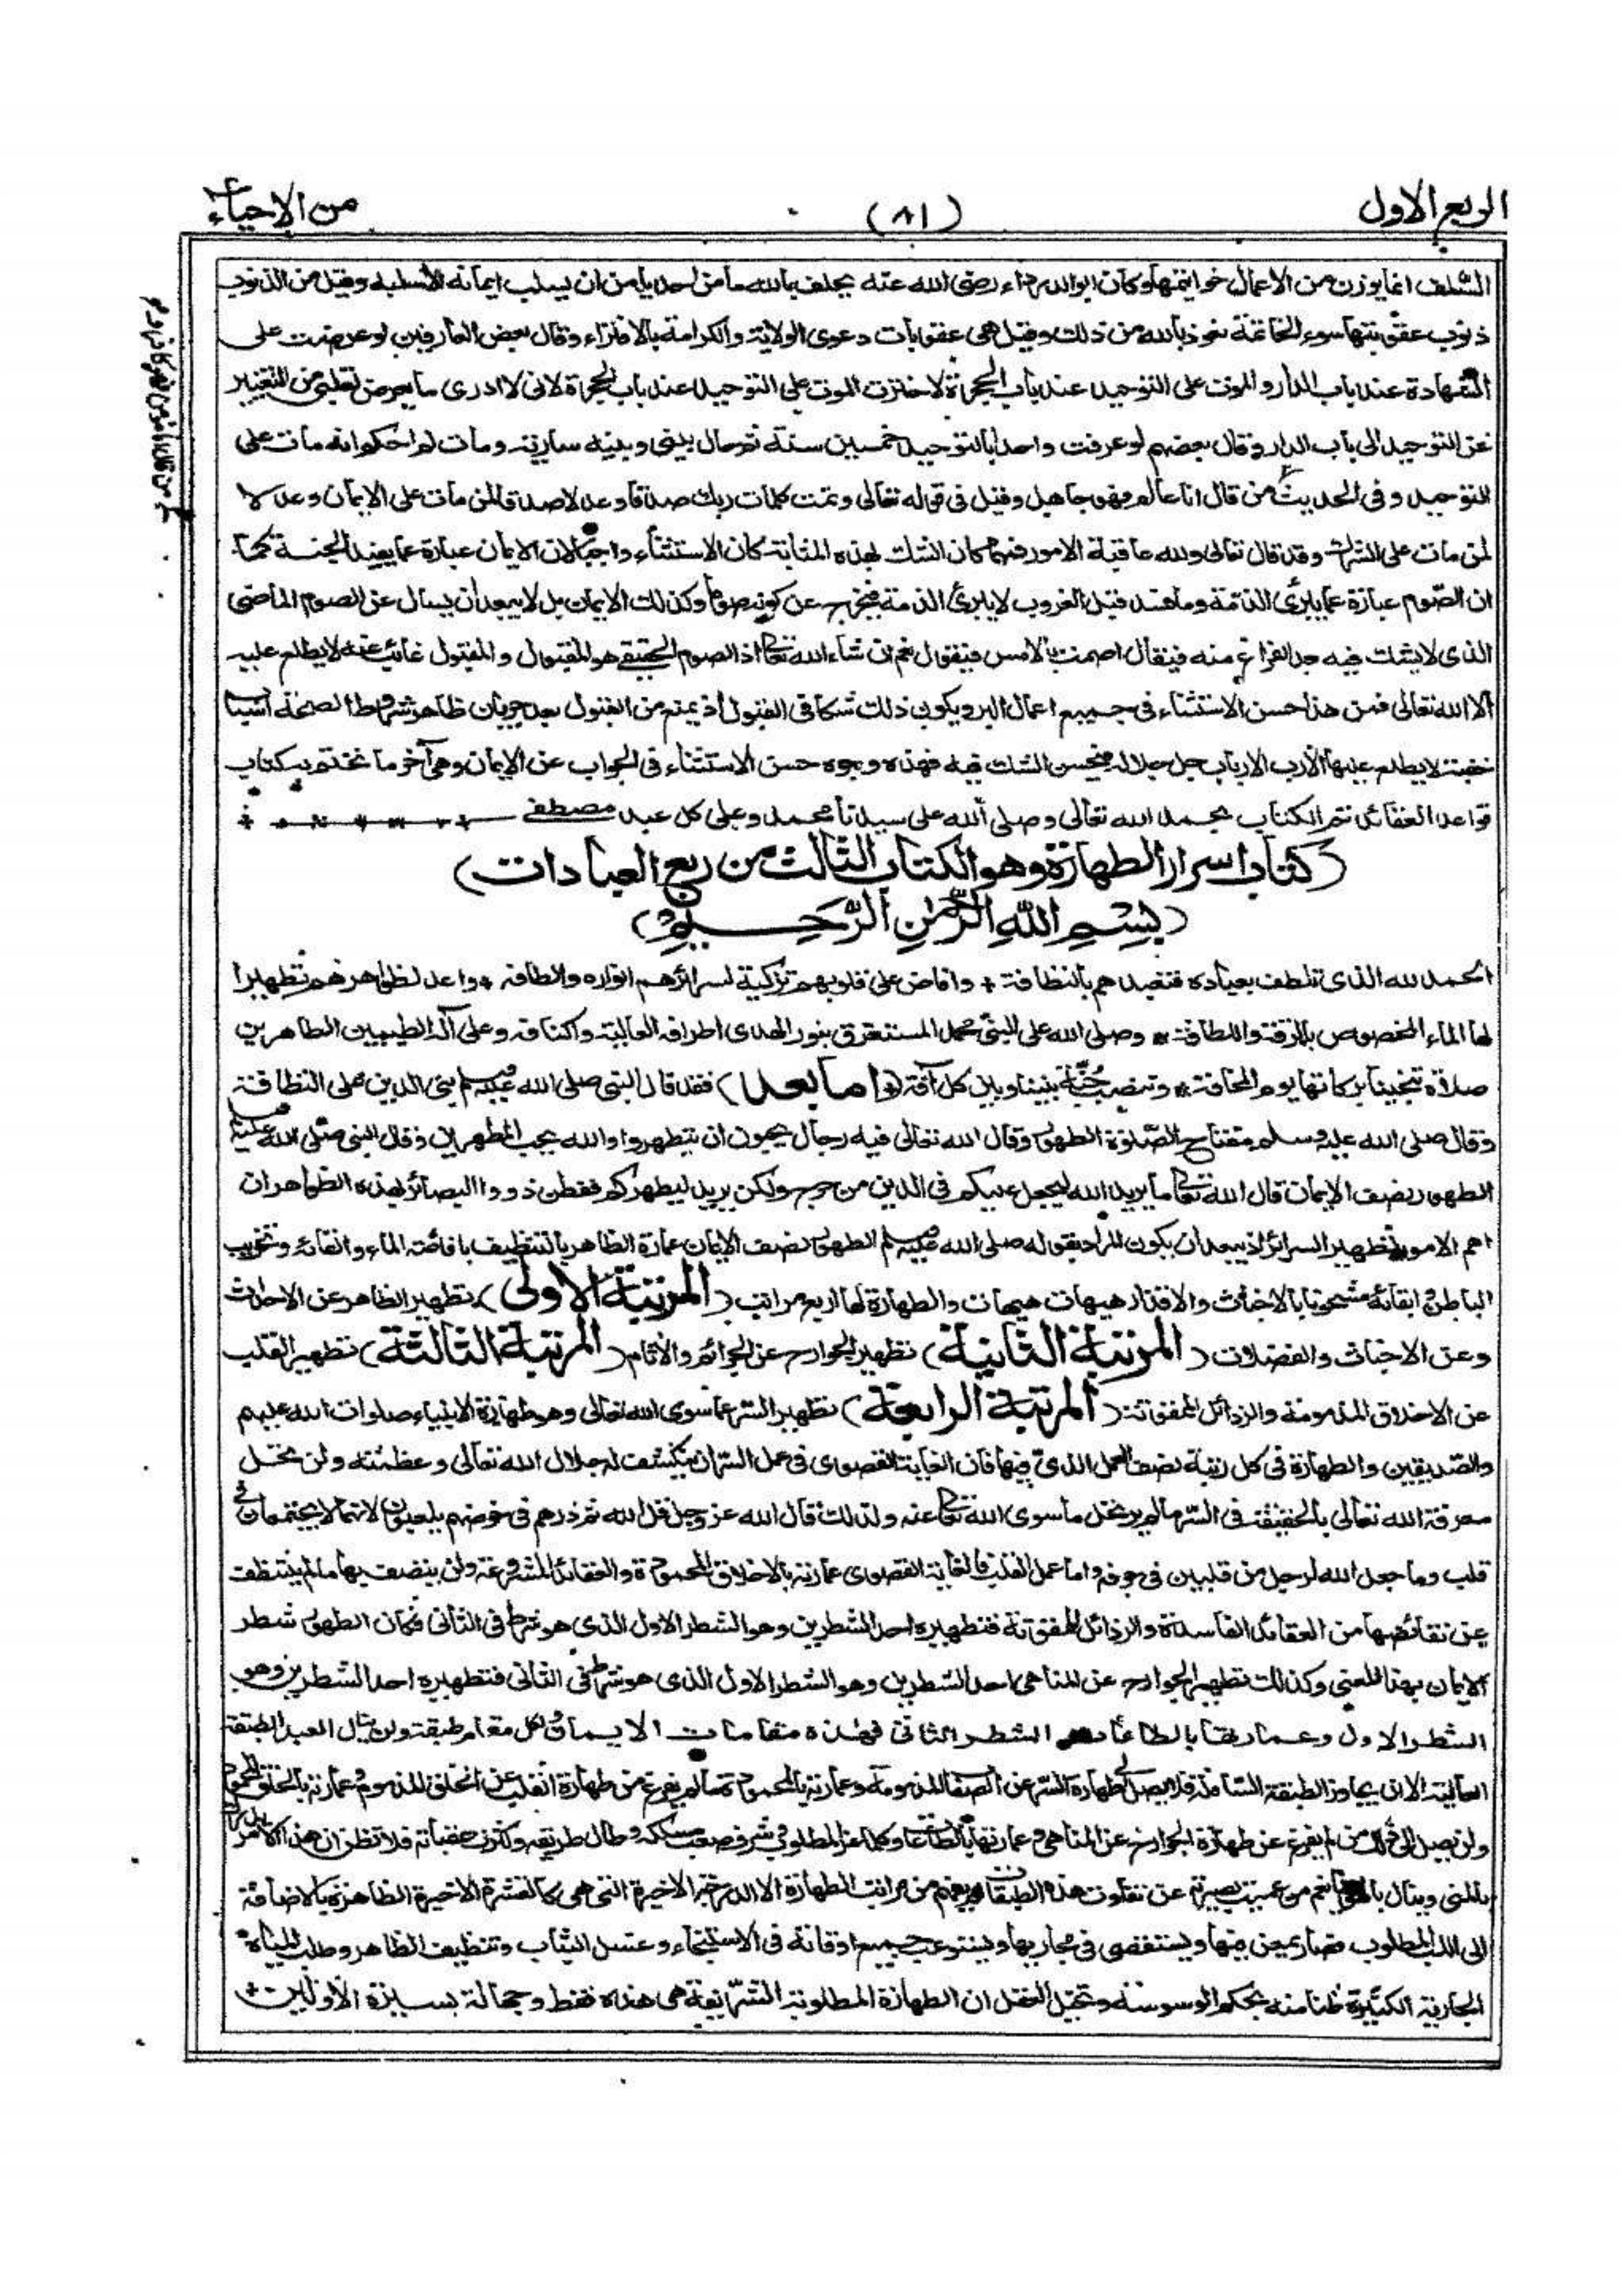 الربع الاول
(٨١)
من الاحياء
السلف انما يوزن من الاعمال خواتمتها وكان ابو الدرداء رضى الله عنه يحلف بالله ما من احد يأمن ان يسلب ايمانه الا سلبه وقيل من الذنوب
ذنوب عقوبتها سوء الخاتمة نعوذ بالله من ذلك وقيل هى عقوبات دعوى الولاية والكرامة بالافتراء وقال بعض العارفين لو عرضت على
الشهادة عند باب الدار والموت على التوحيد عند باب الحجرة لاخترت الموت على التوحيد عند باب الحجرة لانى لا ادرى ما يعرض لقلبى من التغيير
عن التوحيد الى باب الدار وقال بعضهم لو عرفت واحدا بالتوحيد خمسين سنة ثم حال بينى وبينه سارية ومات لم احكم انه مات على
التوحيد وفى الحديث من قال انا عالم فهو جاهل وقيل فى قوله تعالى وتمت كلمات ربك صدقا وعدلا صدقا لمن مات على الايمان وعدلا
لمن مات على الشرك وقد قال تعالى ولله عاقبة الامور فمهما كان الشك بهذه المثابة كان الاستثناء واجبا لان الايمان عبارة عما يفيد الجنة كما
ان الصوم عبارة عما يبرئ الذمة وما فسد قبل الغروب لا يبرئ الذمة فيخرج عن كونه صوما وكذلك الايمان بل لا يبعد ان يسأل عن الصوم الماضى
الذى لا يشك فيه بعد الفراغ منه فيقال اصمت بالامس فيقول نعم ان شاء الله تعالى اذ الصوم الحقيقى هو المقبول والمقبول غائب عنه لا يطلع عليه
الا الله تعالى فمن هذا حسن الاستثناء فى جميع اعمال البر ويكون ذلك شكا فى القبول اذ يمنع من القبول بعد جريان ظاهر شروط الصحة اسباب
خفية لا يطلع عليها الا رب الارباب جل جلاله فيحسن الشك فيه فهذه وجوه حسن الاستثناء فى الجواب عن الايمان وهى آخر ما نختتم به كتاب
قواعد العقائد تم الكتاب بحمد الله تعالى وصلى الله على سيدنا محمد وعلى كل عبد مصطفى
(كتاب اسرار الطهارة وهو الكتاب الثالث من ربع العبادات)
(بسم الله الرحمن الرحيم)
الحمد لله الذى تلطف بعباده فتعبدهم بالنظافة + وافاض على قلوبهم تزكية لسرائرهم انواره والطافه + واعد لظواهرهم تطهيرا
لها الماء المخصوص بالرقة واللطافة * وصلى الله على النبى محمد المستغرق بنور الهدى اطراف العالم واكنافه وعلى آله الطيبين الطاهرين
صلاة تنجينا بركاتها يوم المخافة * وتنصب جنة بيننا وبين كل آفة (اما بعد) فقد قال النبى صلى الله عليه وسلم بنى الدين على النظافة
وقال صلى الله عليه وسلم مفتاح الصلوة الطهور وقال الله تعالى فيه رجال يحبون ان يتطهروا والله يحب المطهرين وقال النبى صلى الله عليه وسلم
الطهور نصف الايمان قال الله تعالى ما يريد الله ليجعل عليكم فى الدين من حرج ولكن يريد ليطهركم فتفطن ذووا البصائر بهذه الظواهر ان
اهم الامور تطهير السرائر اذ يبعد ان يكون المراد بقوله صلى الله عليه وسلم الطهور نصف الايمان عمارة الظاهر بالتنظيف بافاضة الماء والقائه وتخريب
الباطن وابقائه مشحونا بالاخباث والاقذار هيهات هيهات والطهارة لها اربع مراتب (المرتبة الاولى) تطهير الظاهر عن الاحداث
وعن الاخباث والفضلات (المرتبة الثانية) تطهير الجوارح عن الجرائم والآثام (المرتبة الثالثة) تطهير القلب
عن الاخلاق المذمومة والرذائل الممقوتة (المرتبة الرابعة) تطهير السر عما سوى الله تعالى وهو طهارة الانبياء صلوات الله عليهم
والصديقين والطهارة فى كل رتبة نصف العمل الذى فيها فان الغاية القصوى فى عمل السر ان ينكشف له جلال الله تعالى وعظمته ولن تحل
معرفة الله تعالى بالحقيقة فى السر ما لم يرتحل ما سوى الله تعالى عنه ولذلك قال الله عز وجل قل الله ثم ذرهم فى خوضهم يلعبون لانهما لا يجتمعان فى
قلب وما جعل الله لرجل من قلبين فى جوفه واما عمل القلب فالغاية القصوى عمارته بالاخلاق المحمودة والعقائد المشروعة ولن يتصف بها ما لم يتنظف
عن نقائضها من العقائد الفاسدة والرذائل الممقوتة فتطهيره احد الشطرين وهو الشطر الاول الذى هو شرط فى الثانى فكان الطهور شطر
الايمان بهذا المعنى وكذلك تطهير الجوارح عن المناهى احد الشطرين وهو الشطر الاول الذى هو شرط فى الثانى فتطهيره احد الشطرين وهو
الشطر الاول وعمارتها بالطاعات الشطر الثانى فهذه مقامات الايمان ولكل مقام طبقة ولن ينال العبد الطبقة
العالية الا ان يجاوز الطبقة السافلة فلا يصل الى طهارة السر عن الصفات المذمومة وعمارته بالمحمودة ما لم يفرغ من طهارة القلب عن الخلق المذموم وعمارته بالخلق المحمود
ولن يصل الى ذلك من لم يفرغ عن طهارة الجوارح عن المناهى وعمارتها بالطاعات وكلما عز المطلوب وشرف صعب مسلكه وطال طريقه وكثرت عقباته فلا تظن ان هذا الامر
بالمنى وينال بالهوينا نعم من عميت بصيرته عن تفاوت هذه الطبقات لم يفهم من مراتب الطهارة الا الدرجة الاخيرة التى هى كالقشرة الاخيرة الظاهرة بالاضافة
الى اللب المطلوب فصار يمعن فيها ويستقصى فى مجاريها ويستوعب جميع اوقاته فى الاستنجاء وغسل الثياب وتنظيف الظاهر وطلب المياه
الجارية الكثيرة ظنا منه بحكم الوسوسة وتخيل العقل ان الطهارة المطلوبة الشريفة هى هذه فقط وجهالة بسيرة الاولين